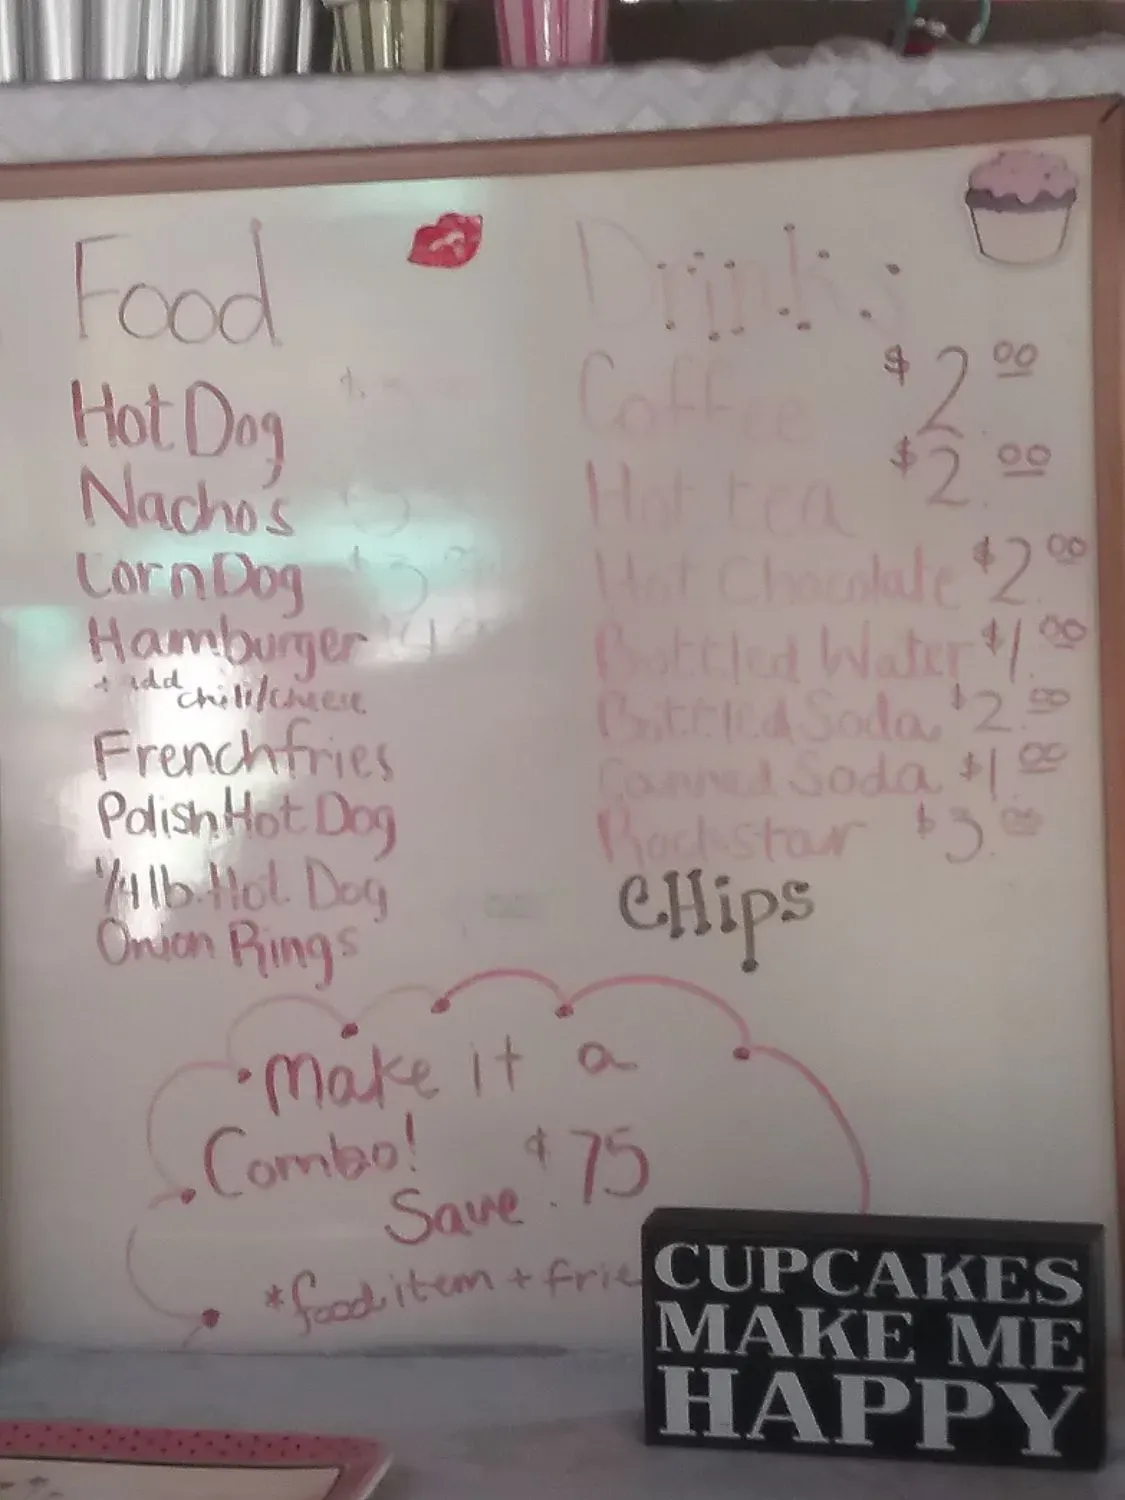 Food
Hot Dog
Nacho's
Corn Dog
Hamburger
+ add chili/cheese
French fries
Polish Hot Dog
1/4 lb. Hot Dog
Onion Rings
Drinks
Coffee $2.00
Hot tea $2.00
Hot Chocolate $2.00
Bottled Water $1.00
Bottled Soda $2.00
Canned Soda $1.00
Rockstar $3.00
CHips
Make it a
Combo!
Save $.75
*food item + 
CUPCAKES
MAKE ME
HAPPY